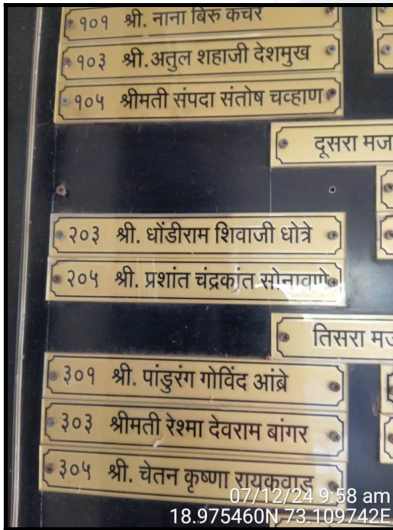 १०१ श्री. नाना बिरु कचरे
१०३ श्री.अतुल शहाजी देशमुख
१०५ श्रीमती संपदा संतोष चव्हाण
दूसरा
२०३ श्री. धोंडीराम शिवाजी धोत्रे
२०५ श्री. प्रशांत चंद्रकांत सोनावणे
तिसरा
३०१ श्री. पांडुरंग गोविंद आंब्रे
३०३ श्रीमती रेश्मा देवराम बांगर
३०५ श्री. चेतन कृष्णा रायकवाड
07/12/24 9:58 am
18.975460N 73.109742E